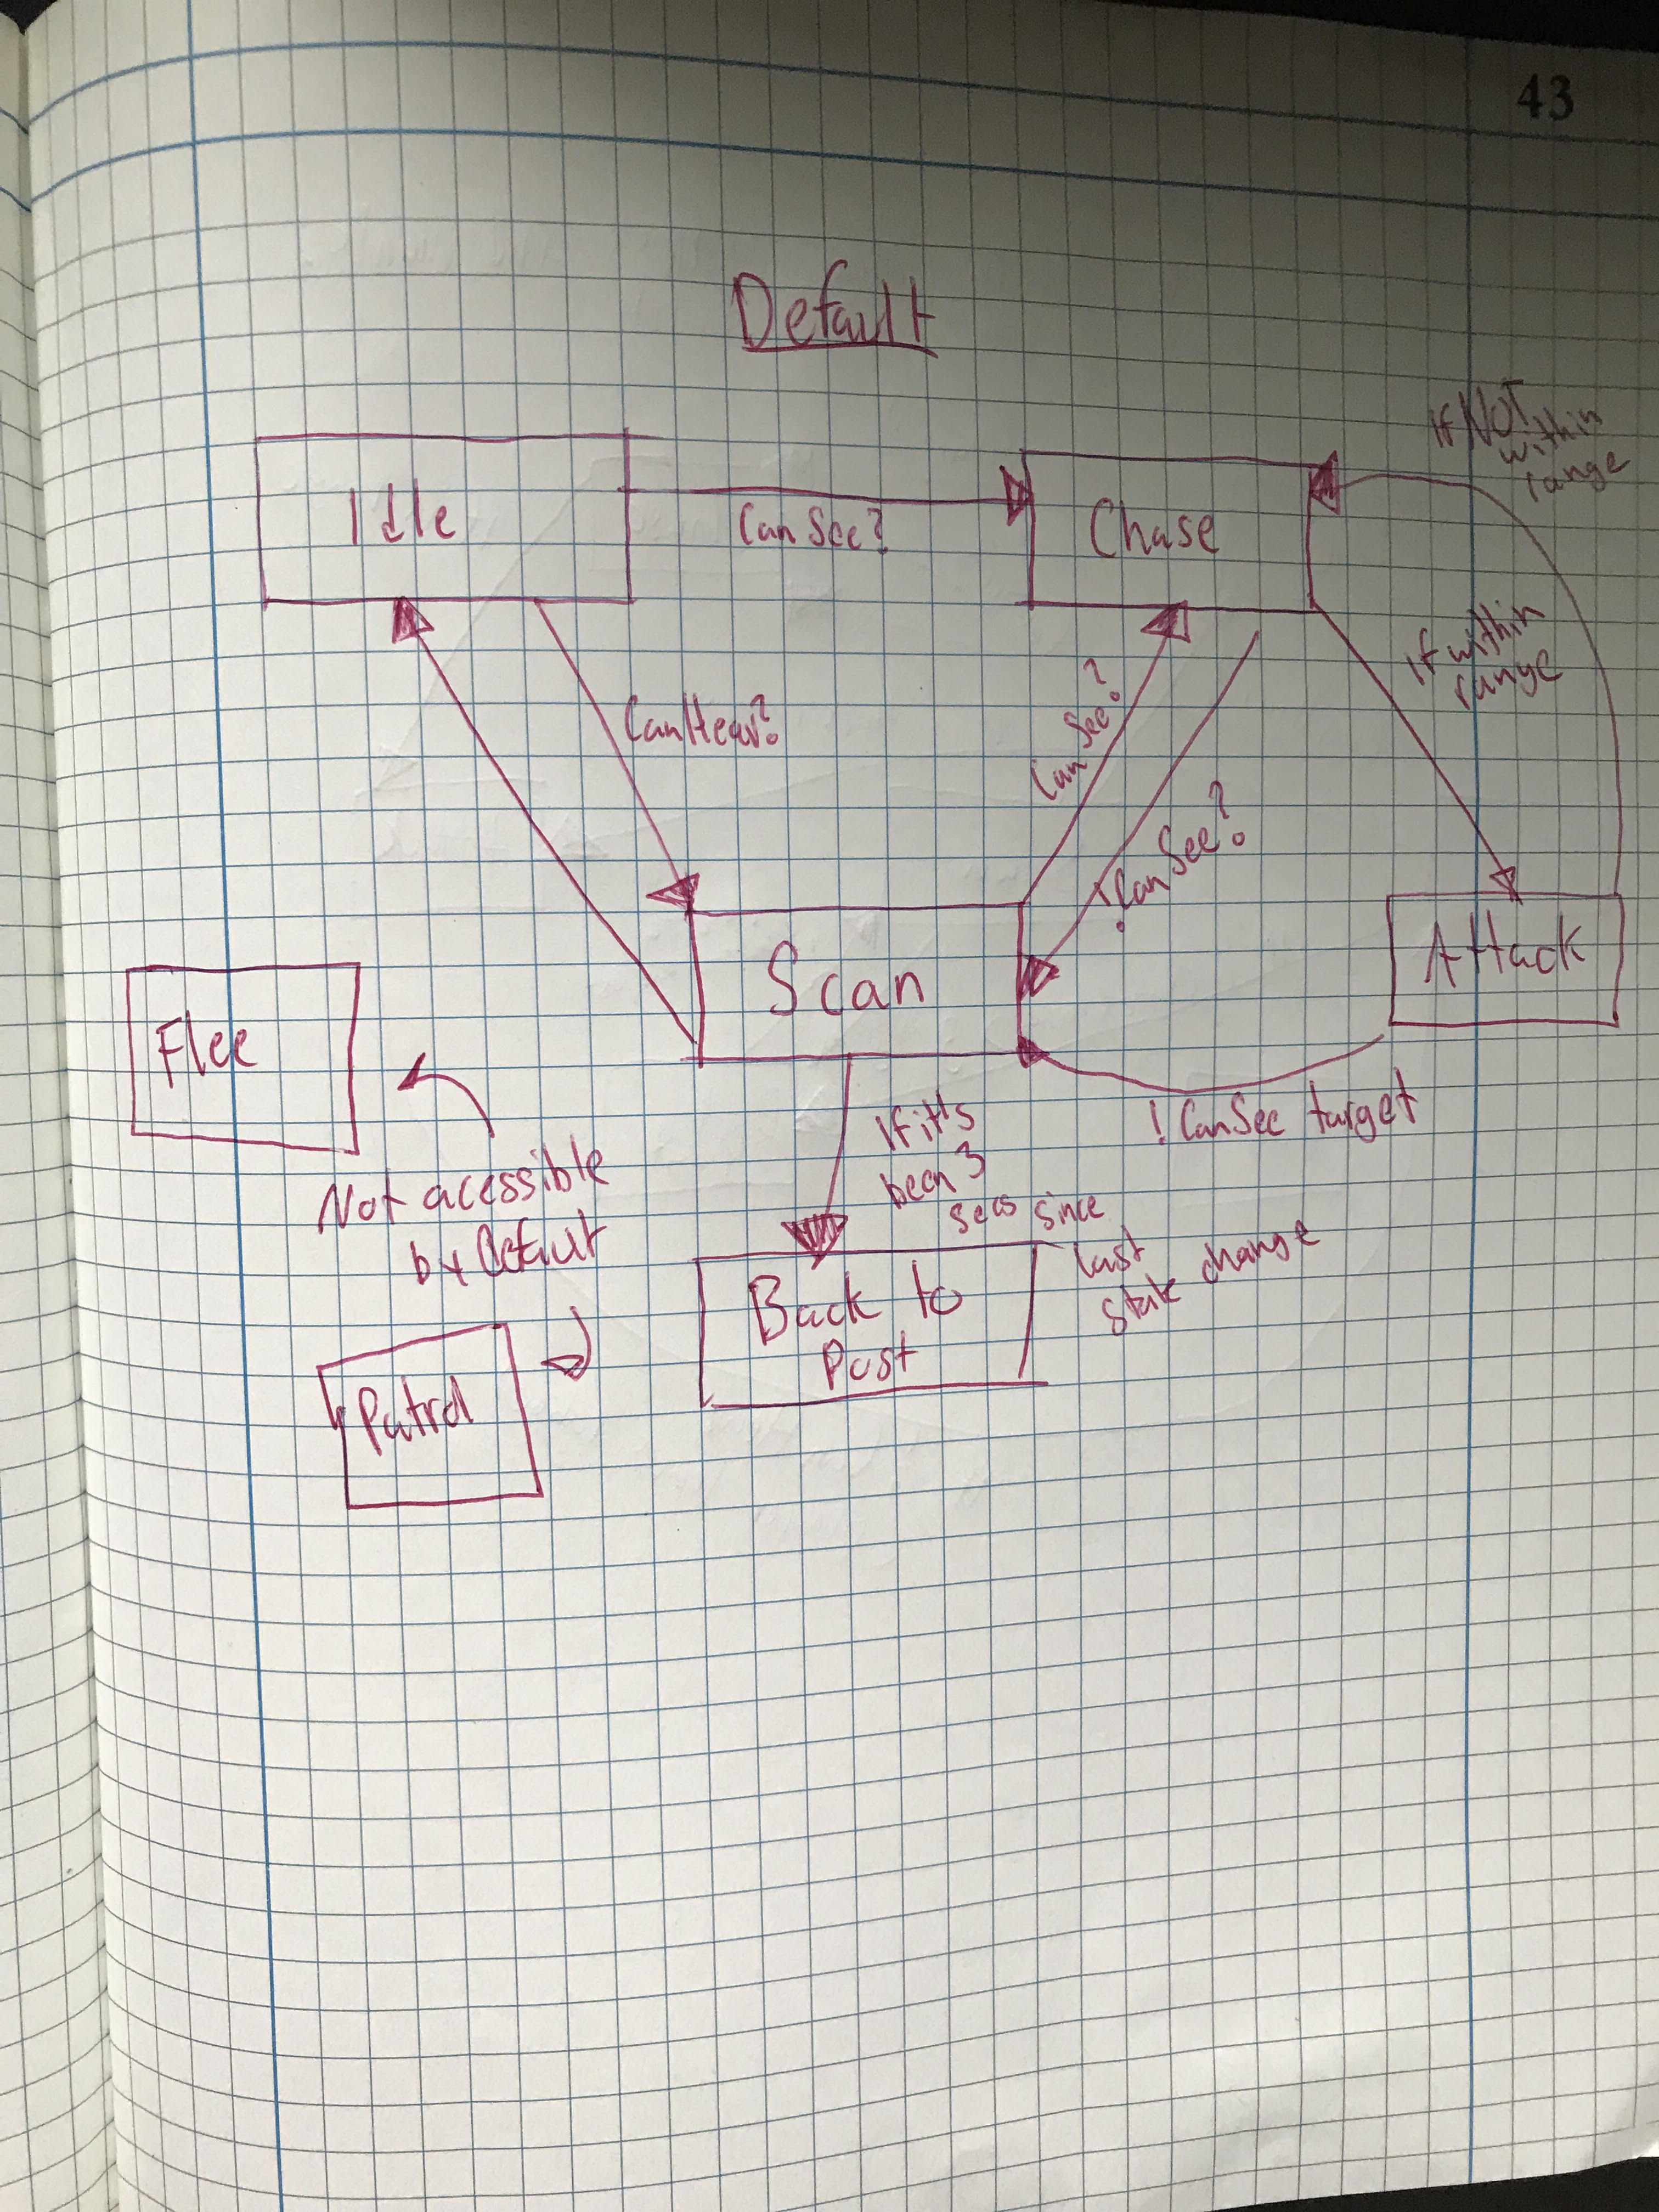 43
Default
If NOT
within
range
Idle
Can See?
Chase
If within
range
CanHear?
Can See?
!Can See?
Scan
Attack
Flee
! CanSee target
If it's
been 3
secs since
last
state change
Not acessible
by Default
Back to
Post
Patrol